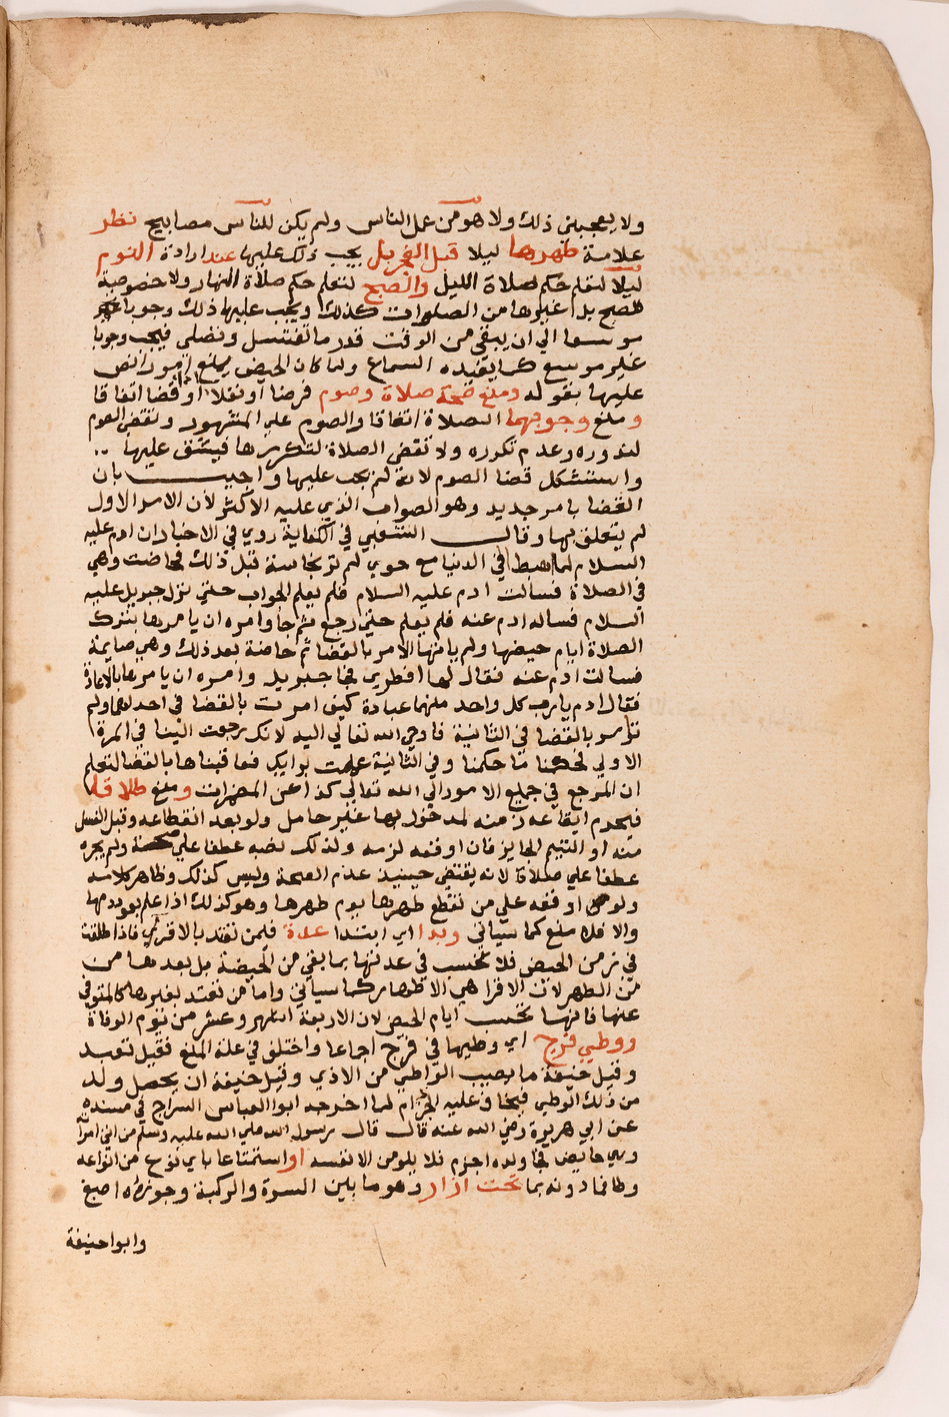 ولا يعجبني ذلك ولا هو من عمل الناس ولم يكن للناس مصابيح نظر
علامة طهرها ليلا قبل الفجر بل يجب ذلك عليها عند ارادة النوم
ليلا لتعلم حكم صلاة الليل والصبح لتعلم حكم صلاة النهار ولا خصوصية
للصبح بل غيرها من الصلوات كذلك ويجب عليها ذلك وجوبا
موسعا الي ان يبقي من الوقت قدر ما تغتسل وتصلي فيجب وجوبا
غير موسع كما يفيده السماع ولما كان الحيض يمنع امور انص
عليها بقوله ومنع صحة صلاة وصوم فرضا او نفلا او قضا اتفاقا
ومنع وجوبهما الصلاة اتفاقا والصوم علي المشهور وتقضي الصوم
لندوره وعدم تكرره ولا تقضي الصلاة لتكررها فيشق عليها
واستشكل قضا الصوم لانه لم يجب عليها واجيب بان
القضا بامر جديد وهو الصواب الذي عليه الاكثر لأن الامر الاول
لم يتعلق بها وقال الشعبي في الكفاية روي في الاخبار ان ادم عليه
السلام لما هبط في الدنيا مع حوي لم تر نجاسة قبل ذلك فحاضت وهي
في الصلاة فسالت ادم عليه السلام فلم يعلم الجواب حتي نزل جبريل عليه
السلام فساله ادم عنه فلم يعلم حتي رجع ثم جا وامره ان يامرها بترك
الصلاة ايام حيضها ولم يامنها الامر بالقضا ثم حاضت بعد ذلك وهي صايمة
فسالت ادم عنه فقال لها افطري فجا جبريل وامره ان يامرها بالاعادة
فقال ادم يا رب كل واحد منهما عبادة كيف امرت بالقضا في احدهما ولم
تامر بالقضا في الثانية فاوحي الله تعالي اليه لانك رجعت الينا في المرة
الاولي فحكمنا ما حكمنا وفي الثانية عملت برايك فعاقبناها بالقضا لتعلم
ان المرجع في جميع الامور الي الله تعالي كذا عن المضمرات ومنع طلاقا
فيحرم ايقاعه زمنه لمدخول بها غير حامل ولو بعد انقطاعه وقبل الغسل
منه او التيمم الجايز فان اوقعه لزمه ولذلك نصبه عطفا علي صحة ولم يجره
عطفا علي صلاة لانه يقتضي حينيذ عدم الصحة وليس كذلك وظاهر كلامه
ولو اوقفه علي من تقطع طهرها يوم طهرها وهو كذلك اذا علم بعود دمها
والا فلا منع كما سياتي وبدا اي ابتدا عدة فلمن تعتد بالاقري فاذا طلقت
في زمن الحيض فلا تحسب في عدتها بما بقي من الحيضة بل بعدها من
من الطهر لان الاقرا هي الاطهار كما سياتي واما من تعتد بغيرها كالمتوفي
عنها فانها تحسب ايام الحيض لان الاربعة اشهر وعشر من يوم الوفاة
ووطي فرج اي وطيها في فرج اجماعا واختلف في علة المنع فقيل تعبد
وقيل خيفة ما يصيب الواطي من الاذي وقيل خيفة ان يحصل ولد
من ذلك الوطي فيخاف عليه الجزام لما اخرجه ابوا العباس السراج في مسنده
عن ابي هريرة رضي الله عنه قال قال رسول الله صلي الله عليه وسلم من اتي امراة
وهي حايض فجا ولده اجزم فلا يلومن الا نفسه او استمتاعا باي نوع من انواعه
وطا فما دونه بما تحت ازار وهو ما بين السرة والركبة وجوزه اصبغ
وابوا حنيفة